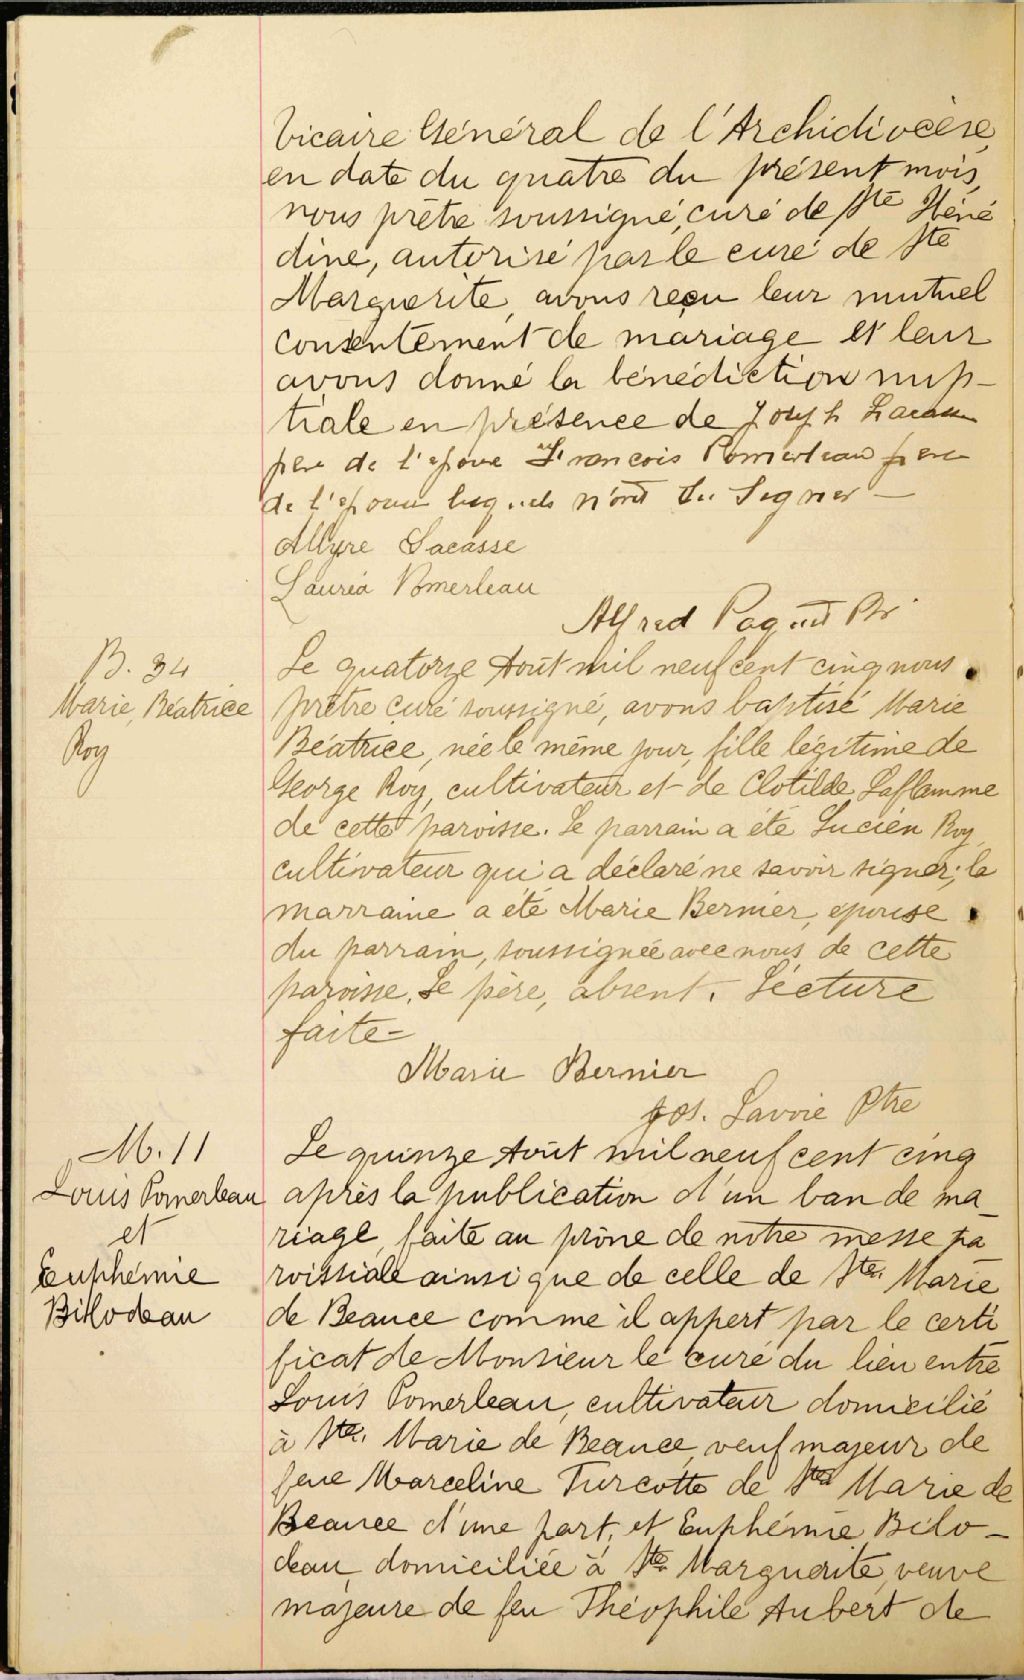 Vicaire Général de l'Archidiocèse,
en date du quatre du présent mois,
nous prêtre soussigné, curé de Ste Héné
dine, autorisé par le curé de Ste
Marguerite, avons reçu leur mutuel
consentement de mariage et leur
avons donné la bénédiction nup-
tiale en présence de Joseph Lacasse
pere de l'epoux François Pomerleau pere
de l'epouse lesquels n'ont su signer -
Allyre Lacasse
Lauréa Pomerleau
Alfred Paquet Ptr
B. 34
Marie, Béatrice
Roy
Le quatorze Août mil neuf cent cinq nous
prêtre curé soussigné, avons baptisé Marie
Béatrice, née le même jour, fille légitime de
George Roy, cultivateur et de Clotilde Laflamme
de cette paroisse. Le parrain a été Lucien Roy,
cultivateur qui a déclaré ne savoir signer; la
marraine a été Marie Bernier, épouse
du parrain, soussignée avec nous de cette
paroisse. Le père, absent. Lecture
faite -
Marie Bernier
Jos. Lavoie Ptre
M. 11
Louis Pomerleau
et
Euphémie
Bilodeau
Le quinze Août mil neuf cent cinq
après la publication d'un ban de ma_
riage, faite au prône de notre messe pa
roissiale ainsi que de celle de Ste. Marie
de Beauce comme il appert par le certi
ficat de Monsieur le curé du lieu entre
Louis Pomerleau, cultivateur domicilié
à Ste. Marie de Beauce, veuf majeur de
feue Marceline Turcotte de Ste Marie de
Beauce d'une part, et Euphémie Bilo-
deau, domiciliée à Ste Marguerite, veuve
majeure de feu Théophile Aubert de